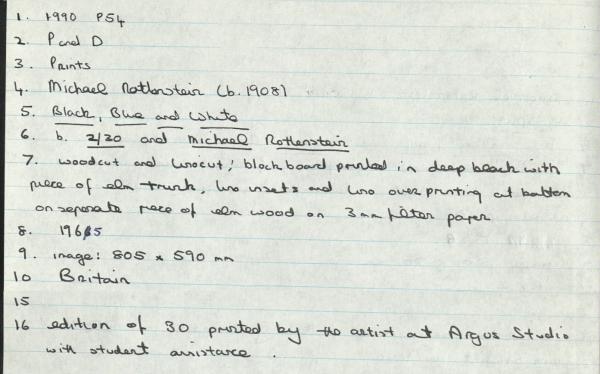 1. 1990 P54
2. P and D
3. Prints
4. Michael Rothenstein (b. 1908)
5. Black, Blue and White
6. b. 2/20 and Michael Rothenstein
7. woodcut and linocut; blockboard printed in deep black with
piece of elm trunk, lino insets and lino overprinting at bottom
on separate piece of elm wood on 3mm filter paper
8. 1965
9. image: 805 x 590 mm
10 Britain
15
16 edition of 30 printed by the artist at Argus Studio
with student assistance.